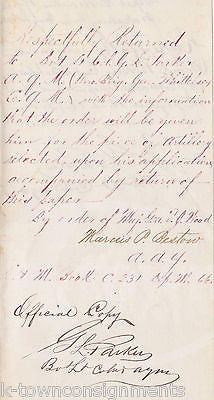 Respectfully Returned
to Bvt Lt Col G. L. Parker
A. Q. M. (thro Brig. Gen.
C. Q. M.) with the information
that the order will be given
him for the piece of Artillery
selected, upon his application
accompanied by return of
this paper.
By order of Maj. Gen. T. J. Wood
Marcus P. Bestow
A. A. G.
E & M Book C. 231 Dep. M. 66.
Official Copy
G L Parker
Bvt Lt Col & aqm
© k-townconsignments.com